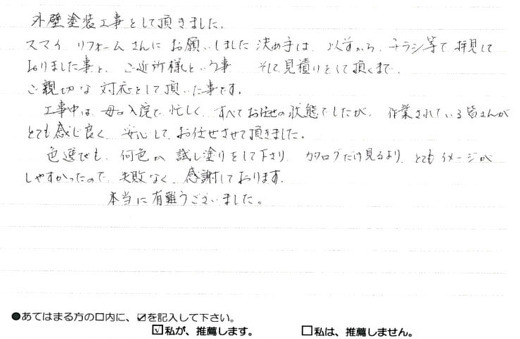 外壁塗装工事をして頂きました。
スマイルリフォームさんにお願いしました決め手は、以前から、チラシ等で拝見して
おりました事と、ご近所様という事 そして見積りをして頂くまで、
ご親切な対応をして頂いた事です。
工事中は、母の入院で忙しく、すべてお任せの状態でしたが、作業されている皆さんが
とても感じ良く、安心して、お任せさせて頂きました。
色選びも、何色か試し塗りをして下さり、カタログだけ見るより、とてもイメージが
しやすかったので、失敗なく、感謝しております。
本当に有難うございました。
●あてはまる方の口内に、☑を記入して下さい。
☑私が、推薦します。 □私は、推薦しません。